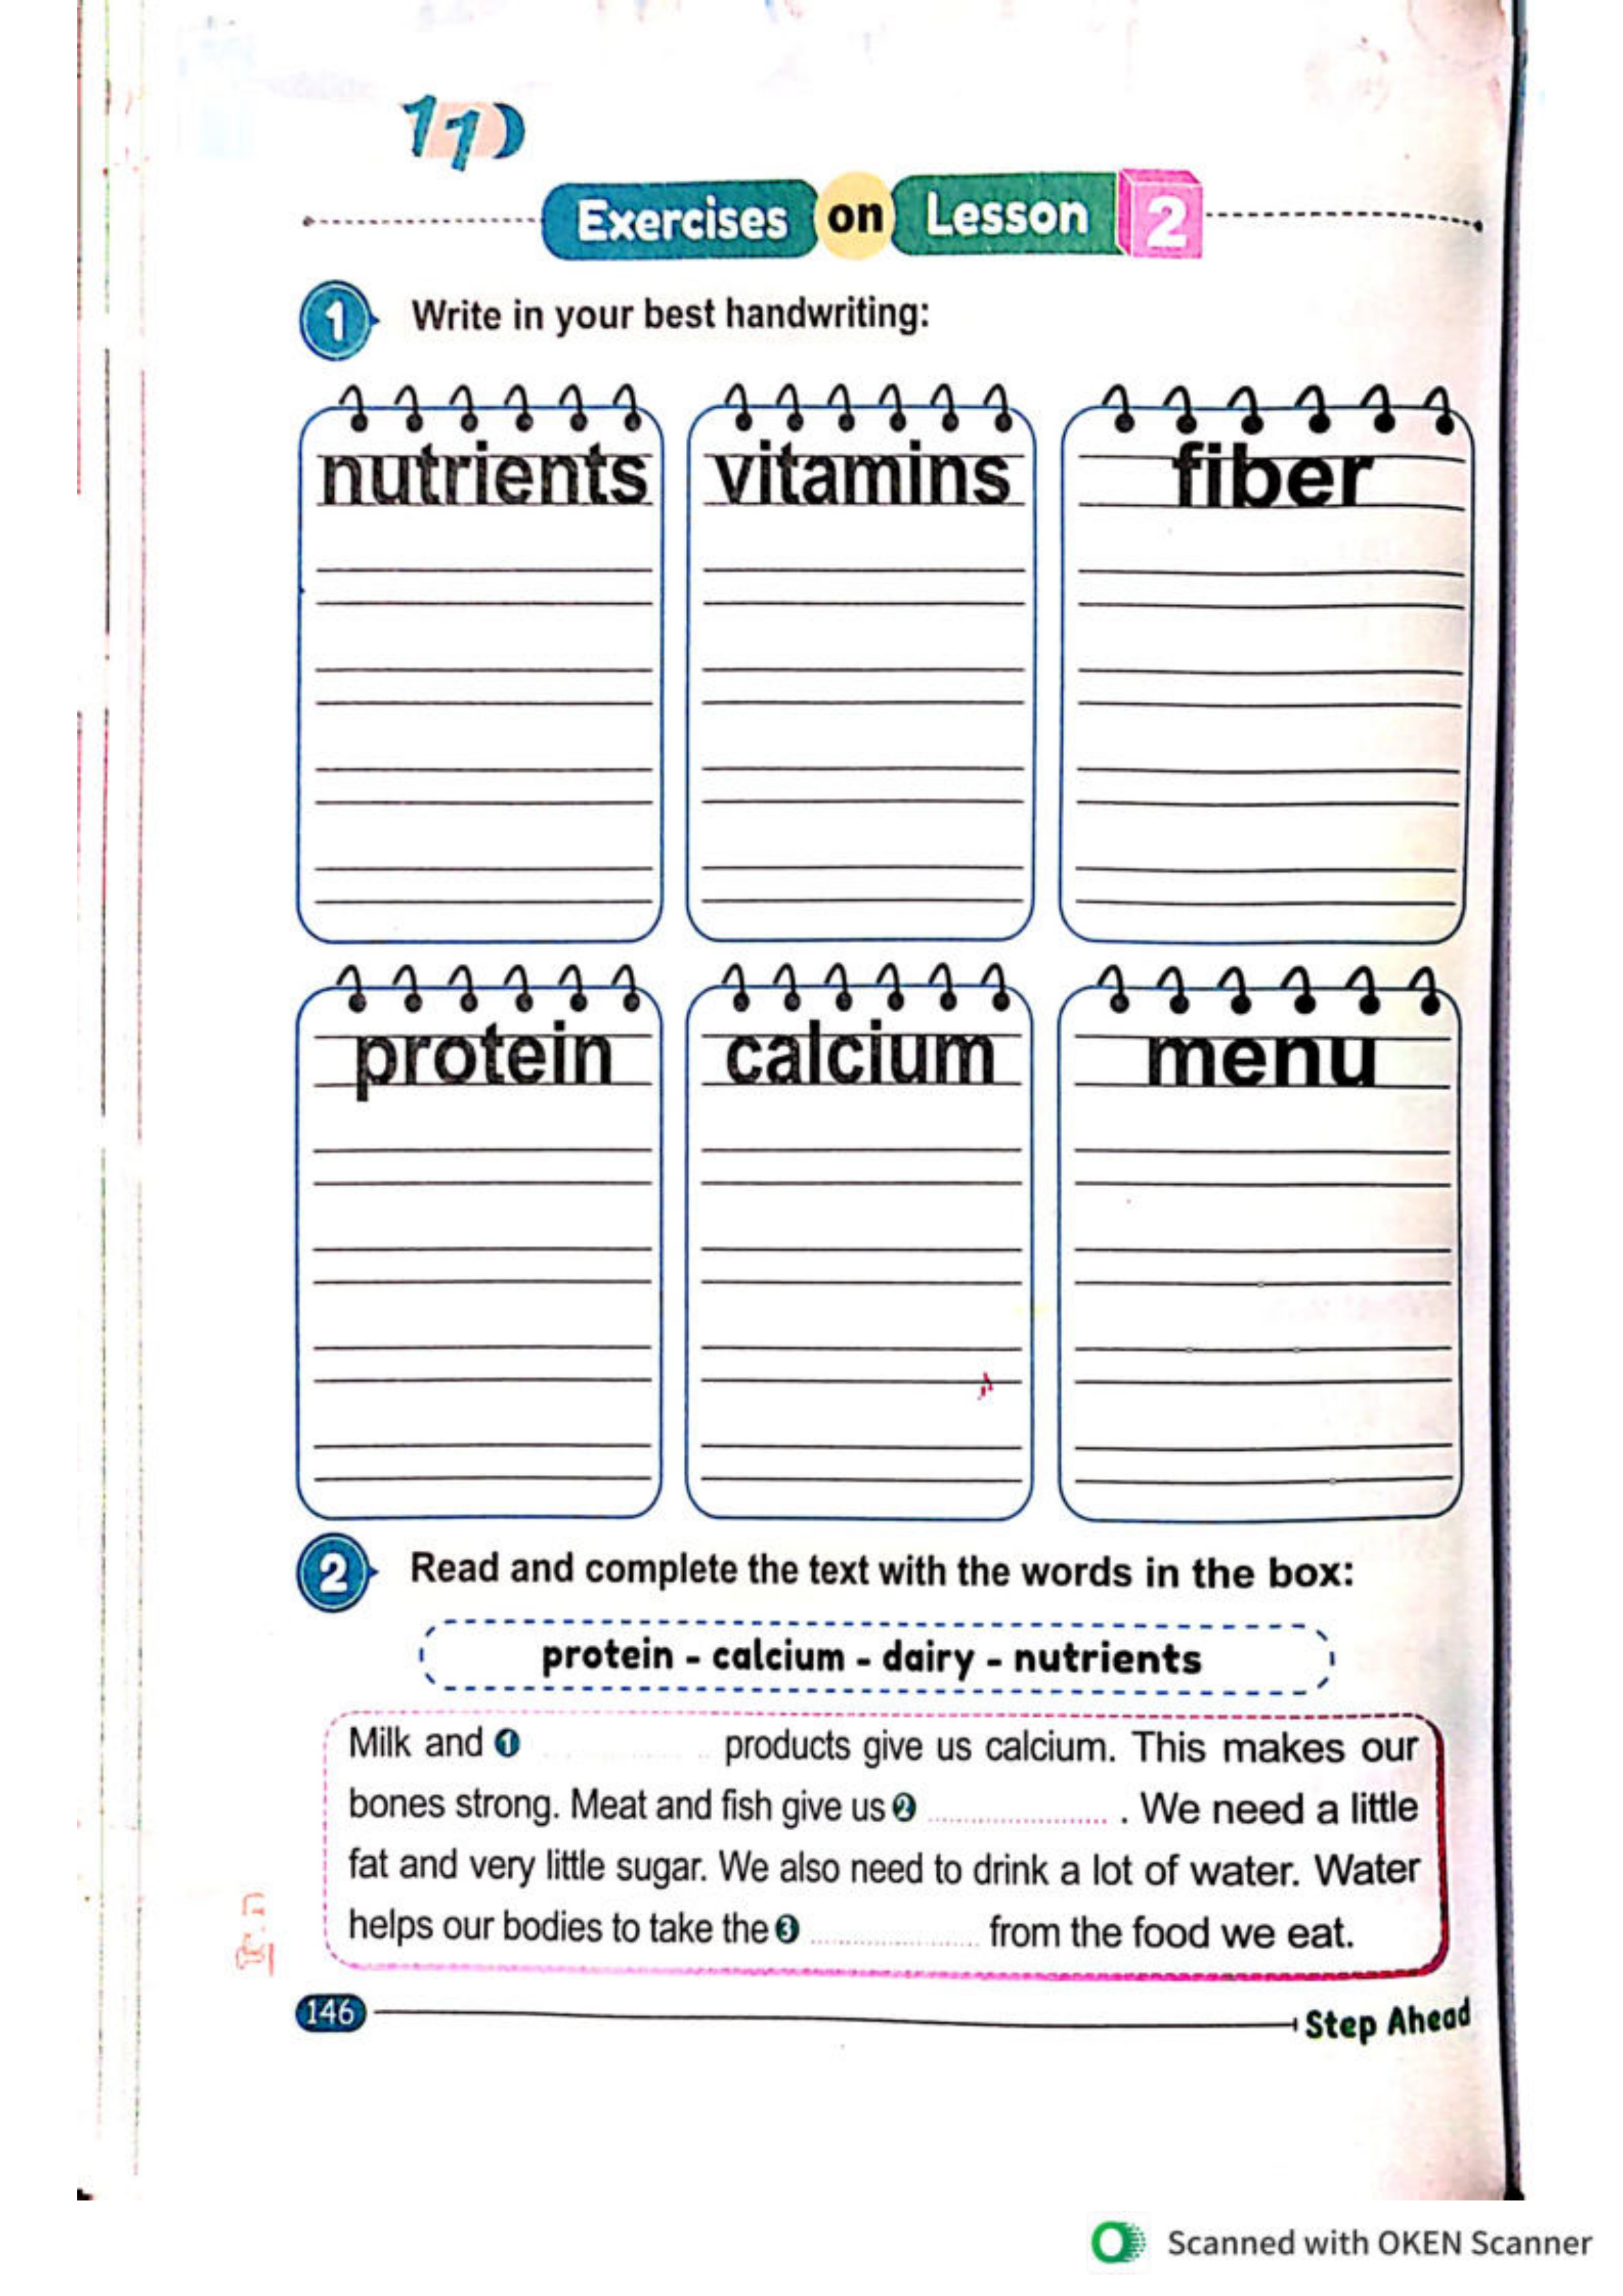 11
Exercises on Lesson 2
1 Write in your best handwriting:
nutrients vitamins fiber
protein calcium menu
2 Read and complete the text with the words in the box:
protein - calcium - dairy - nutrients
Milk and 1 .................... products give us calcium. This makes our
bones strong. Meat and fish give us 2 .................... . We need a little
fat and very little sugar. We also need to drink a lot of water. Water
helps our bodies to take the 3 .................... from the food we eat.
146 Step Ahead
Scanned with OKEN Scanner